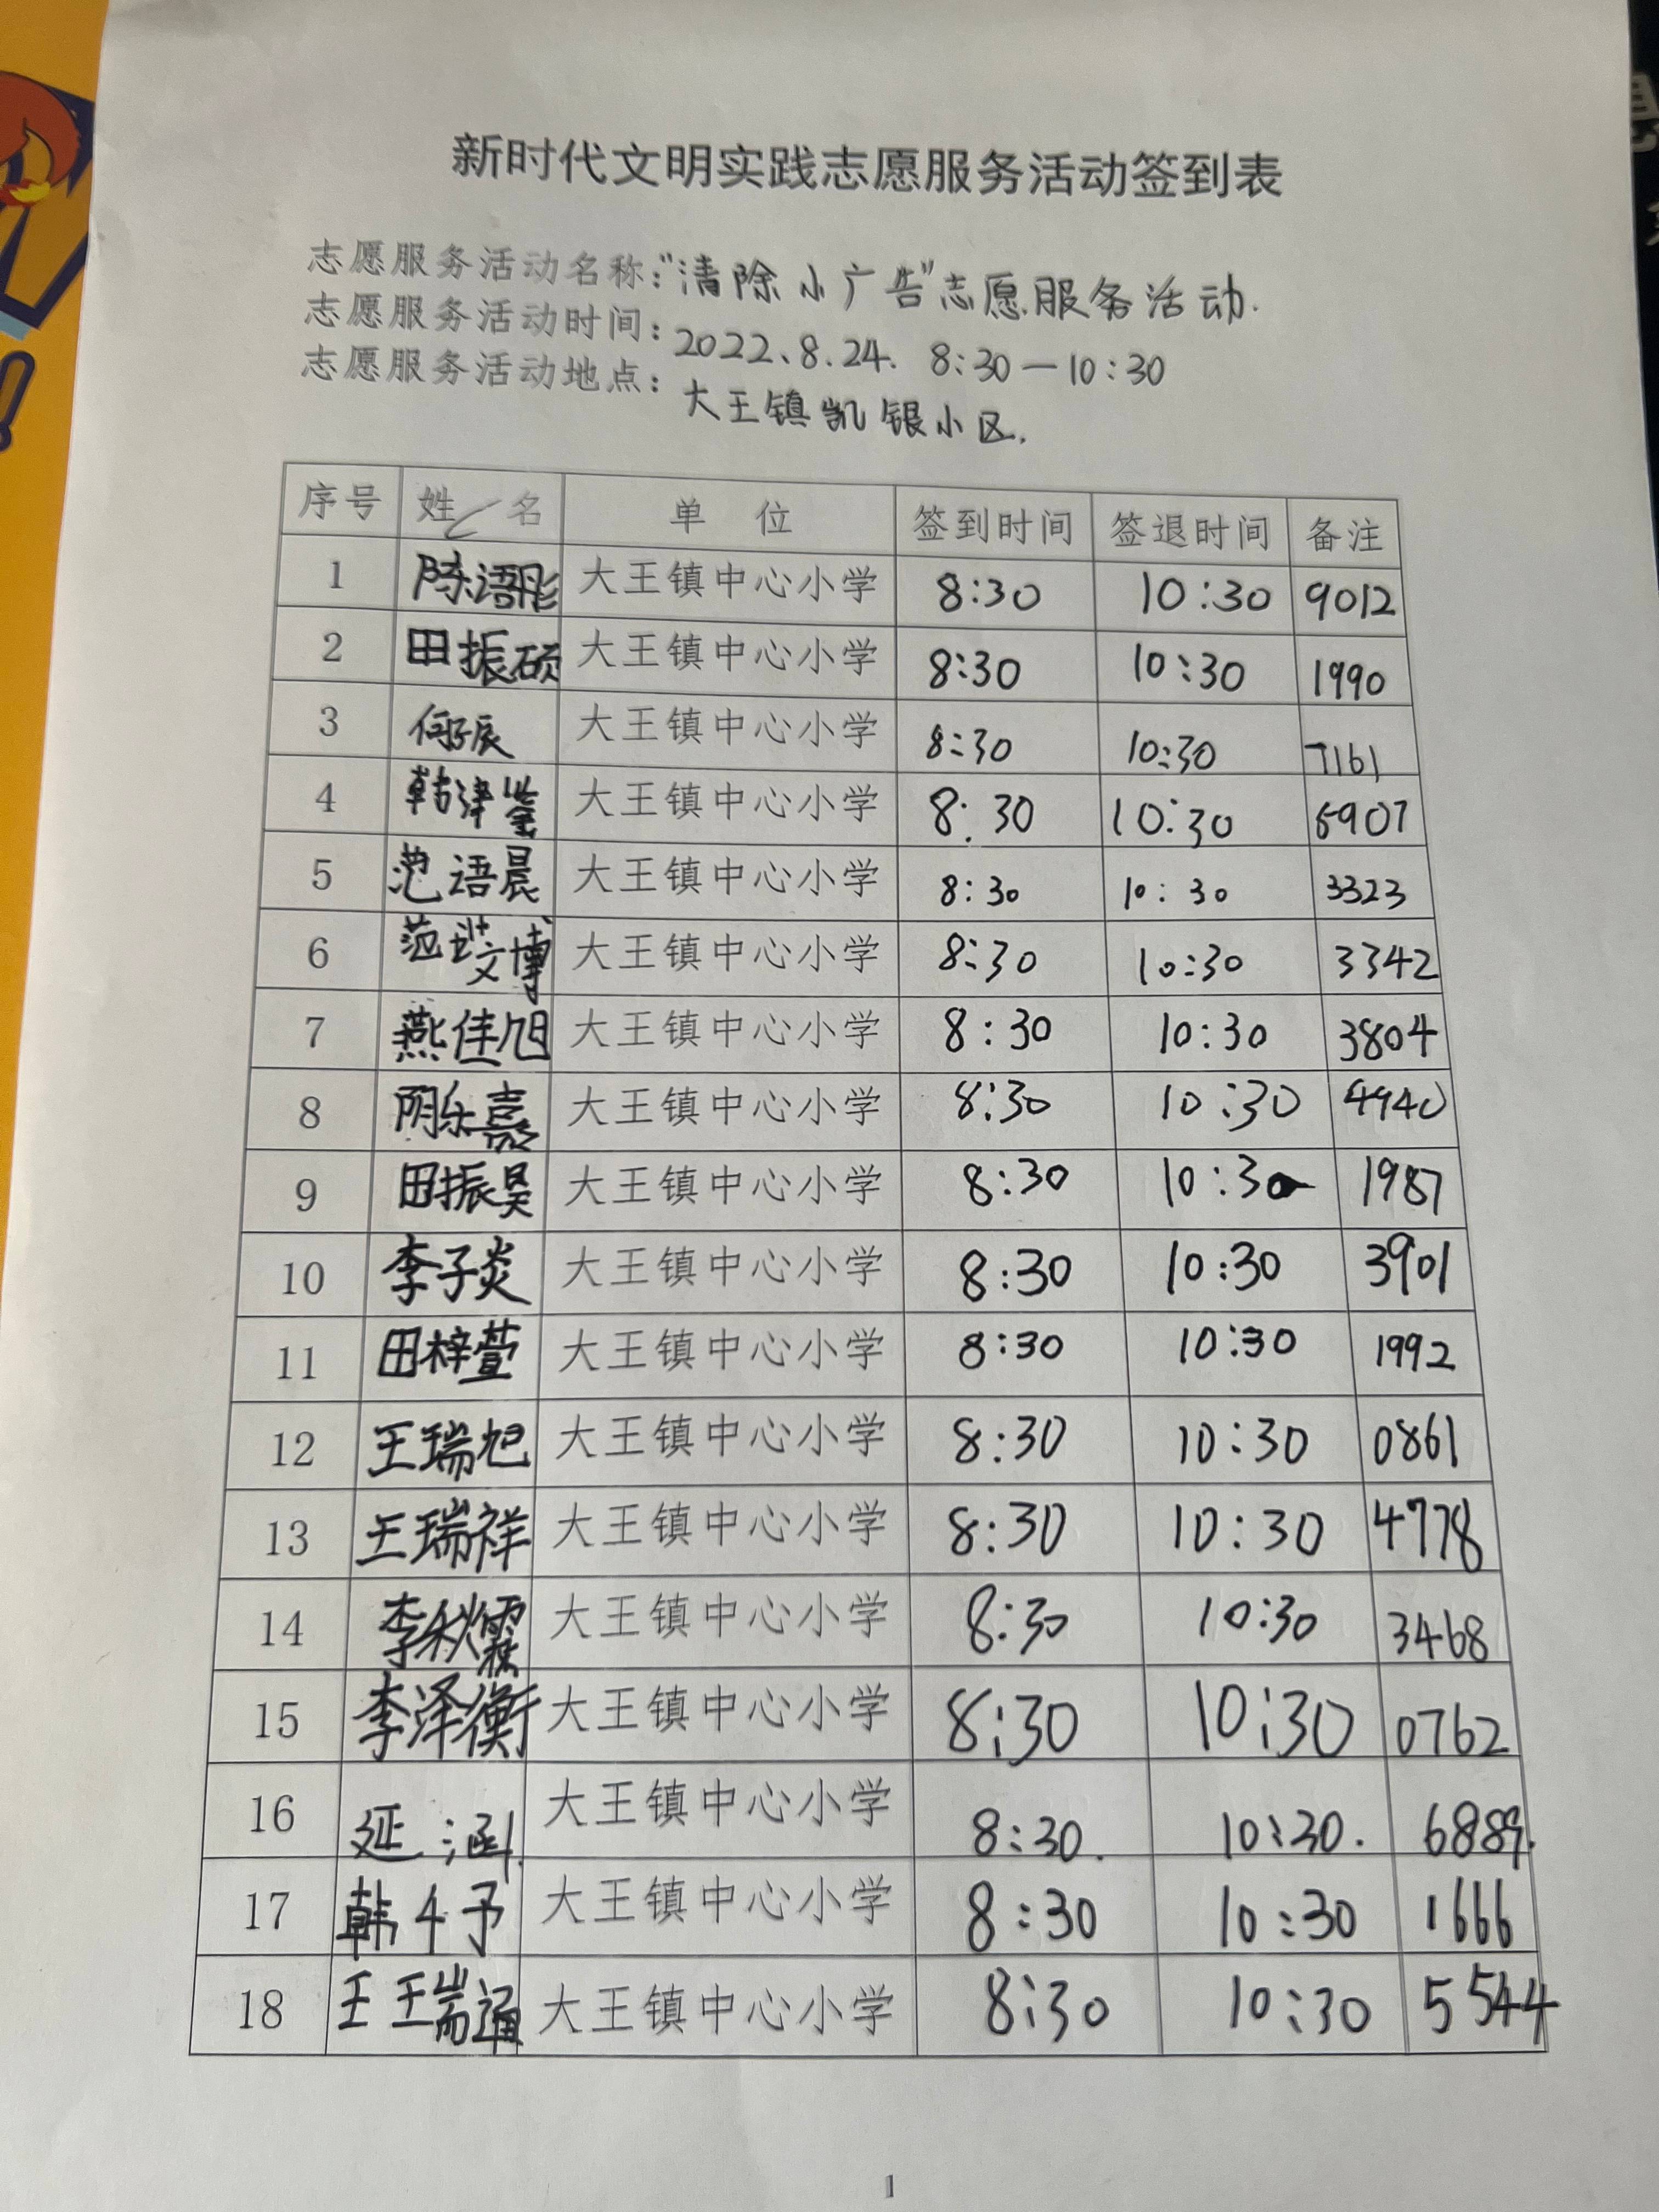 新时代文明实践志愿服务活动签到表
志愿服务活动名称："清除小广告"志愿服务活动.
志愿服务活动时间：2022、8.24. 8:30—10:30
志愿服务活动地点：大王镇凯银小区.
序号 姓名 单位 签到时间 签退时间 备注
1 陈语彤 大王镇中心小学 8:30 10:30 9012
2 田振硕 大王镇中心小学 8:30 10:30 1990
3 何子辰 大王镇中心小学 8:30 10:30 7161
4 韩津鉴 大王镇中心小学 8:30 10:30 6907
5 范语晨 大王镇中心小学 8:30 10:30 3323
6 大王镇中心小学 8:30 10:30 3342
7 燕佳旭 大王镇中心小学 8:30 10:30 3804
8 大王镇中心小学 8:30 10:30 4940
9 田振昊 大王镇中心小学 8:30 10:30 1987
10 李子炎 大王镇中心小学 8:30 10:30 3901
11 田梓萱 大王镇中心小学 8:30 10:30 1992
12 王瑞旭 大王镇中心小学 8:30 10:30 0861
13 王瑞祥 大王镇中心小学 8:30 10:30 4778
14 李秋霖 大王镇中心小学 8:30 10:30 3468
15 李泽衡 大王镇中心小学 8:30 10:30 0762
16 延涵. 大王镇中心小学 8:30. 10:30. 6889.
17 韩千予 大王镇中心小学 8:30 10:30 1666
18 王瑞通 大王镇中心小学 8:30 10:30 5544
1